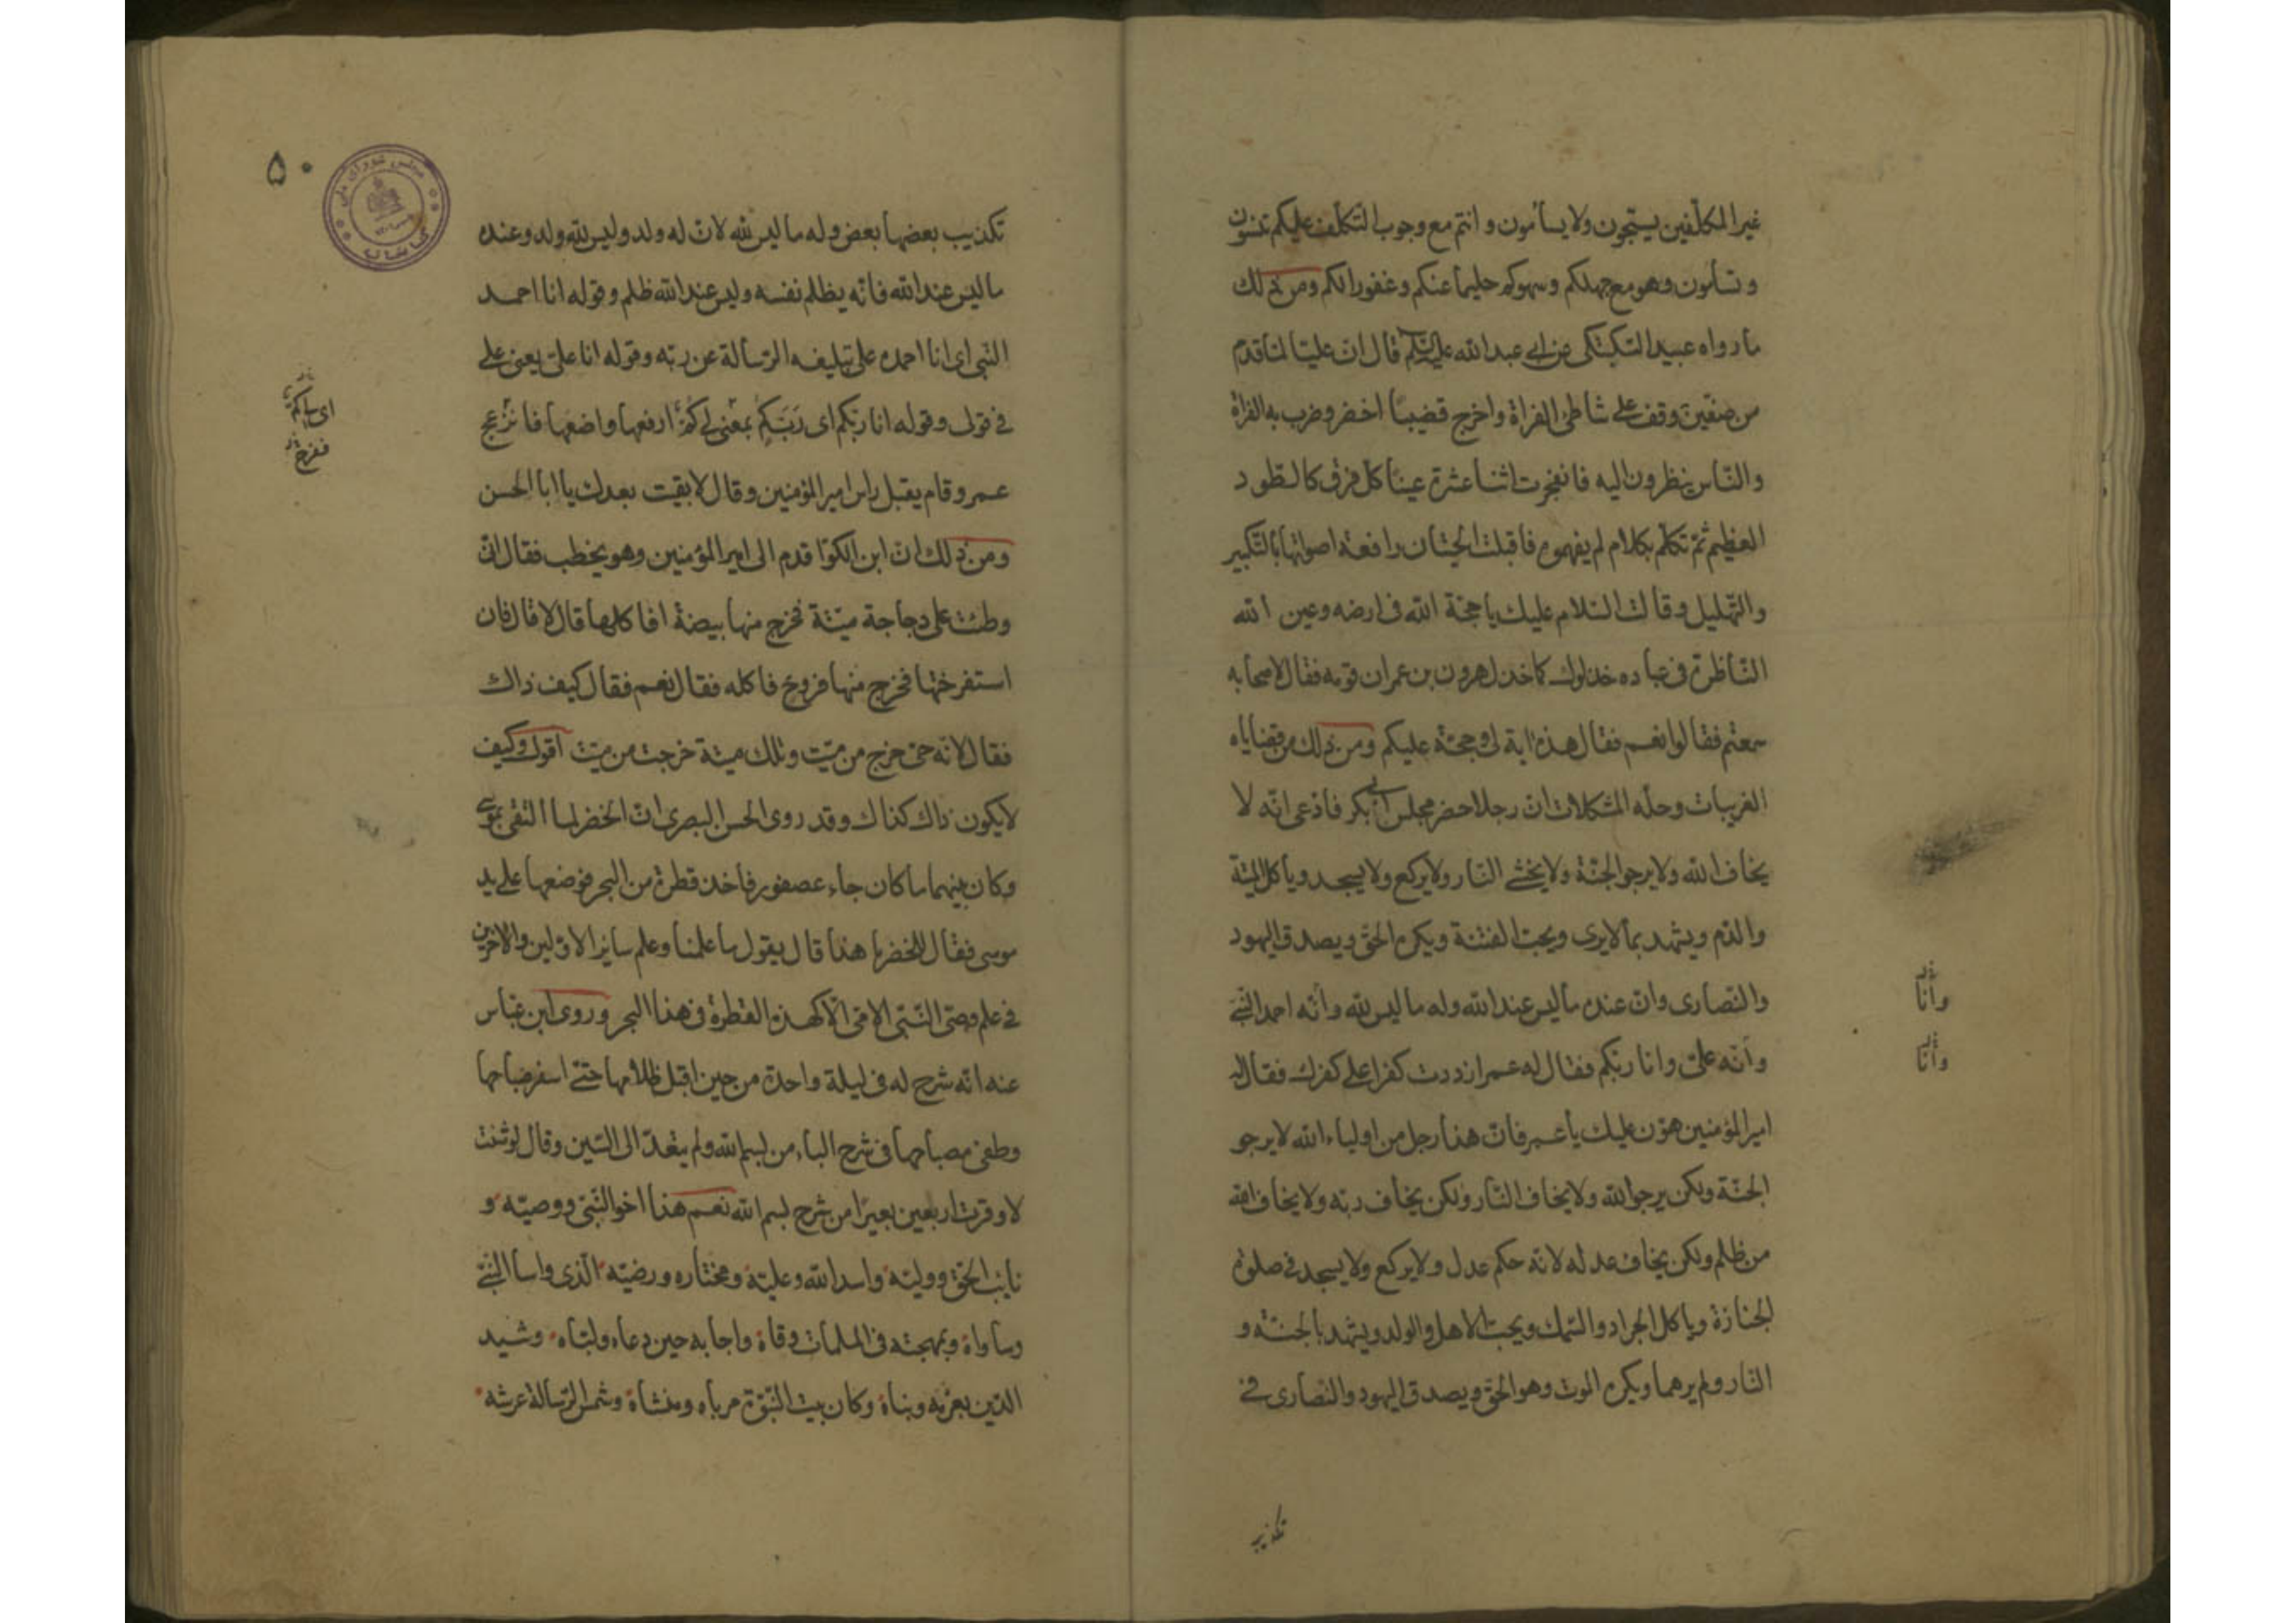 غير المكلّفين يسبّحون ولا يسأمون وانتم مع وجوب التكلّف عليكم تنسون
وتسأمون وهو مع جهلكم وسهوكم حليما عنكم وغفورا لكم ومن ذلك
ما رواه عبيد السكسكى عن ابى عبد الله عليه السلام قال ان عليّا لمّا قدم
من صفّين وقف على شاطئ الفراة واخرج قضيبا اخضر وضرب به الفراة
والنّاس ينظرون اليه فانفجرت اثنتا عشرة عينا كل فرق كالطّود
العظيم ثمّ تكلّم بكلام لم يفهموه فاقبلت الحيتان رافعة اصواتها بالتّكبير
والتّهليل وقالت السّلام عليك يا حجّة الله فى ارضه وعين الله
النّاظرة فى عباده خذلوك كما خذل هرون بن عمران قومه فقال لاصحابه
سمعتم فقالوا نعم فقال هذه اية لى وحجّة عليكم ومن ذلك من قضاياه
الغريبات وحلّه المشكلات ان رجلا حضر مجلس ابى بكر فادّعى انّه لا
يخاف الله ولا يرجو الجنّة ولا يخشى النّار ولا يركع ولا يسجد وياكل الميتة
والدّم ويشهد بما لا يرى ويحبّ الفتنة ويكره الحقّ ويصدق اليهود
والنصارى وان عنده ما ليس عند الله وله ما ليس لله وأنّه احمد النّبىّ
وأنّه علىّ وانا ربّكم فقال له عمر ازددت كفرا على كفرك فقال له
امير المؤمنين هوّن عليك يا عمر فانّ هذا رجل من اولياء الله لا يرجو
الجنّة ولكن يرجو الله ولا يخاف النّار ولكن يخاف ربّه ولا يخاف الله
من ظلم ولكن يخاف عدله لانّه حكم عدل ولا يركع ولا يسجد فى صلوة
الجنازة وياكل الجراد والسّمك ويحبّ الاهل والولد ويشهد بالجنّة و
النّار ولم يرهما ويكره الموت وهو الحقّ ويصدق اليهود والنصارى فى
وأنا
وأنا
تكذيب
۵۰
مجلس شورای ملی
کتابخانه
تكذيب بعضها بعض وله ما ليس لله لانّ له ولد وليس لله ولد وعنده
ما ليس عند الله فانّه يظلم نفسه وليس عند الله ظلم وقوله انا احمد
النّبى اى انا احمده على تبليغه الرّسالة عن ربّه وقوله انا علىّ يعنى علىّ
فى قولى وقوله انا ربّكم اى رَبَّكُم بمعنى لى كمّ ارفعها واضعها فانزعج
عمر وقام يقبل راس امير المؤمنين وقال لا بقيت بعدك يا ابا الحسن
ومن ذلك انّ ابن الكوّا قدم الى امير المؤمنين وهو يخطب فقال انّى
وطئت على دجاجة ميّتة فخرج منها بيضة افاكلها قال لا قال فان
استفرختها فخرج منها فروخ فاكله فقال نعم فقال كيف ذاك
فقال لانّه حىّ خرج من ميّت وتلك ميتة خرجت من ميّت اقول وكيف
لا يكون ذاك كذاك وقد روى الحسن البصرى انّ الخضر لما التقى بموسى
وكان بينهما ما كان جاء عصفور فاخذ قطرة من البحر فوضعها على يد
موسى فقال للخضر ما هذا قال يقول ما علمنا وعلم ساير الاوّلين والاخرين
فى علم وصىّ النّبىّ الامّى الّا كهذه القطرة فى هذا البحر وروى ابن عبّاس
عنه انّه شرح له فى ليلة واحدة من حين اقبل ظلامها حتّى اسفر صباحها
وطفى مصباحها فى شرح الباء من بسم الله ولم يتعدّ الى السّين وقال لو شئت
لاوقرت اربعين بعيرا من شرح بسم الله نعم هذا اخو النّبىّ ووصيّه و
نايب الحقّ ووليّه واسد الله وعليّه ومختاره ورضيّه الّذى واسا النّبىّ
وساواه وبمهجته فى الملمات وقاه واجابه حين دعاه ولبّاه وشيد
الدّين بعزمه وبناه وكان بيت النّبوّة مرباه ومنشاه وشمس الرّسالة عرشه